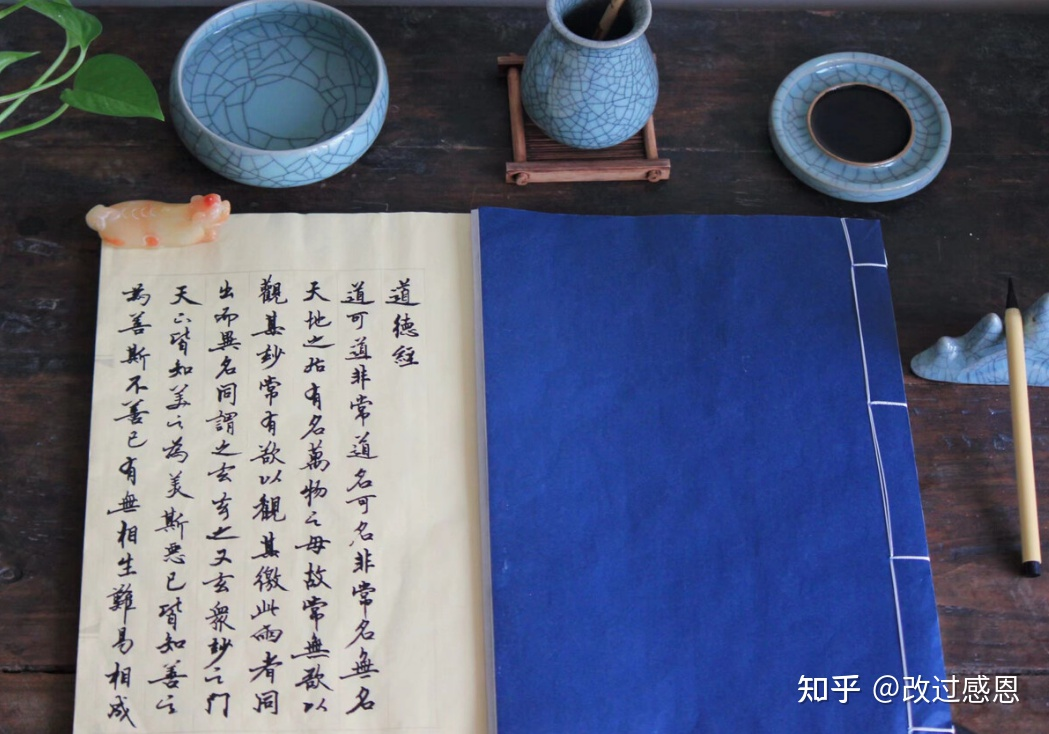 道德經
道可道非常道名可名非常名無名
天地之始有名萬物之母故常無欲以
觀其妙常有欲以觀其徼此兩者同
出而異名同謂之玄玄之又玄衆妙之門
天下皆知美之為美斯惡已皆知善之
為善斯不善已有無相生難易相成
知乎 @改过感恩